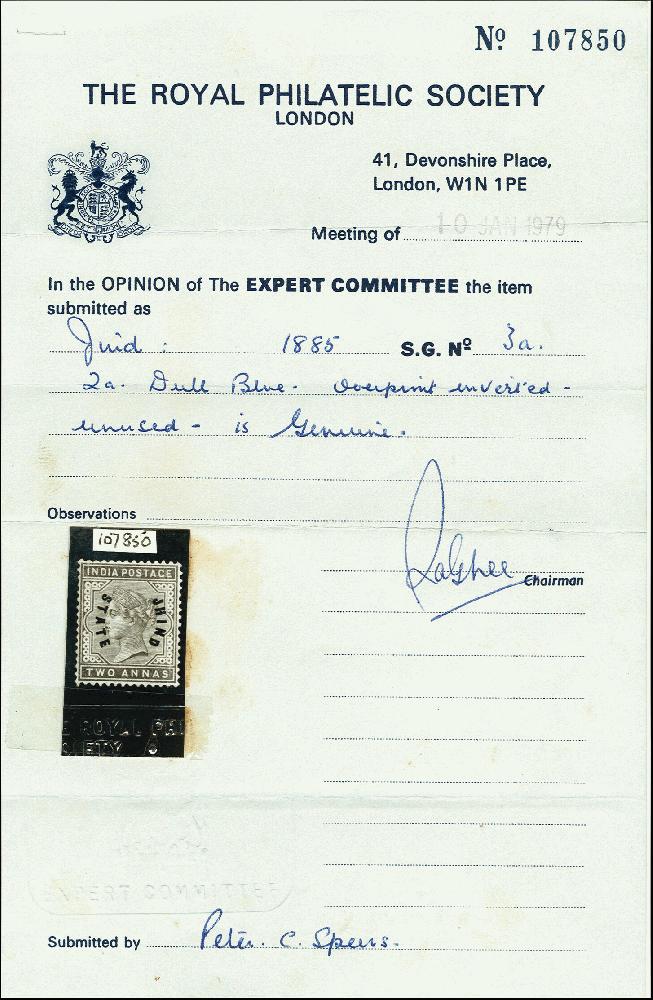 Nº 107850
THE ROYAL PHILATELIC SOCIETY
LONDON
41, Devonshire Place,
London, W1N 1PE
Meeting of 10 JAN 1979
In the OPINION of The EXPERT COMMITTEE the item
submitted as
Jhind : 1885 S.G. Nº 3a.
2a. Dull Blue. Overprint inverted -
unused - is Genuine.
Observations
107850
INDIA POSTAGE
JHIND
STATE
TWO ANNAS
ROYAL PHI
IETY
Chairman
Submitted by Peter. C. Speers.